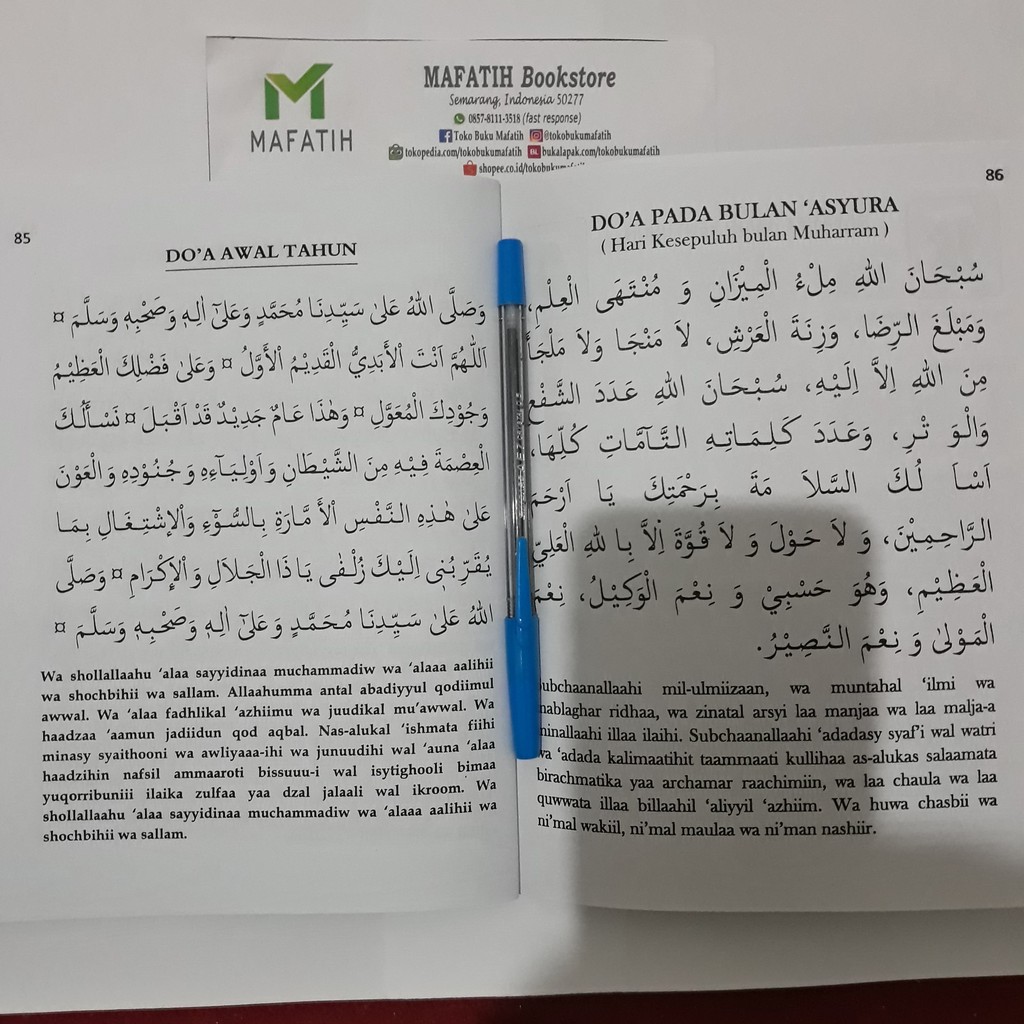 MAFATIH
MAFATIH Bookstore
Semarang, Indonesia 50277
0857-8111-3518 (fast response)
Toko Buku Mafatih @tokobukumafatih
tokopedia.com/tokobukumafatih bukalapak.com/tokobukumafatih
shopee.co.id/tokobukumafatih
85
DO'A AWAL TAHUN
وَصَلَّى اللهُ عَلَى سَيِّدِنَا مُحَمَّدٍ وَعَلَى اٰلِهِ وَصَحْبِهِ وَسَلَّمَ ¤
اَللّٰهُمَّ اَنْتَ الْأَبَدِيُّ الْقَدِيْمُ الْأَوَّلُ ¤ وَعَلَى فَضْلِكَ الْعَظِيْمُ
وَجُوْدِكَ الْمُعَوَّلِ ¤ وَهٰذَا عَامٌ جَدِيْدٌ قَدْ اَقْبَلَ ¤ نَسْأَلُكَ
الْعِصْمَةَ فِيْهِ مِنَ الشَّيْطَانِ وَاَوْلِيَآءِهِ وَجُنُوْدِهِ وَالْعَوْنَ
عَلَى هٰذِهِ النَّفْسِ الْأَ مَّارَةِ بِالسُّوْٓءِ وَالْاِشْتِغَالِ بِمَا
يُقَرِّبُنِى اِلَيْكَ زُلْفٰى يَا ذَا الْجَلَالِ وَالْاِكْرَامِ ¤ وَصَلَّى
اللهُ عَلَى سَيِّدِنَا مُحَمَّدٍ وَعَلَى اٰلِهِ وَصَحْبِهِ وَسَلَّمَ ¤
Wa shollallaahu 'alaa sayyidinaa muchammadiw wa 'alaaa aalihii
wa shochbihii wa sallam. Allaahumma antal abadiyyul qodiimul
awwal. Wa 'alaa fadhlikal 'azhiimu wa juudikal mu'awwal. Wa
haadzaa 'aamun jadiidun qod aqbal. Nas-alukal 'ishmata fiihi
minasy syaithooni wa awliyaaa-ihi wa junuudihi wal 'auna 'alaa
haadzihin nafsil ammaaroti bissuuu-i wal isytighooli bimaa
yuqorribuniii ilaika zulfaa yaa dzal jalaali wal ikroom. Wa
shollallaahu 'alaa sayyidinaa muchammadiw wa 'alaaa aalihii wa
shochbihii wa sallam.
86
DO'A PADA BULAN 'ASYURA
( Hari Kesepuluh bulan Muharram )
سُبْحَانَ اللهِ مِلْءُ الْمِيْزَانِ وَ مُنْتَهَى الْعِلْمِ،
وَمَبْلَغَ الرِّضَا، وَزِنَةَ الْعَرْشِ، لاَ مَنْجَا وَلاَ مَلْجَأَ
مِنَ اللهِ اِلاَّ اِلَيْهِ، سُبْحَانَ اللهِ عَدَدَ الشَّفْعِ
وَالْوَ تْرِ، وَعَدَدَ كَلِمَاتِهِ التَّآمَّاتِ كُلِّهَا،
اَسْأَ لُكَ السَّلاَ مَةَ بِرَحْمَتِكَ يَا اَرْحَمَ
الرَّاحِمِيْنَ، وَ لاَ حَوْلَ وَ لاَ قُوَّةَ اِلاَّ بِا للهِ الْعَلِيِّ
الْعَظِيْمِ، وَهُوَ حَسْبِيْ وَ نِعْمَ الْوَكِيْلُ، نِعْمَ
الْمَوْلىٰ وَ نِعْمَ النَّصِيْرُ.
ubchaanallaahi mil-ulmiizaan, wa muntahal 'ilmi wa
mablaghar ridhaa, wa zinatal arsyi laa manjaa wa laa malja-a
minallaahi illaa ilaihi. Subchaanallaahi 'adadasy syaf'i wal watri
wa 'adada kalimaatihit taammaati kullihaa as-alukas salaamata
birachmatika yaa archamar raachimiin, wa laa chaula wa laa
quwwata illaa billaahil 'aliyyil 'azhiim. Wa huwa chasbii wa
ni'mal wakiil, ni'mal maulaa wa ni'man nashiir.